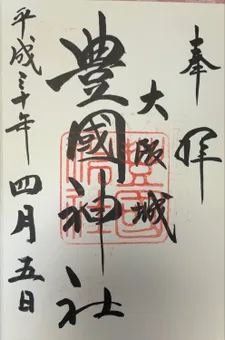 奉拝
大阪城
豊國神社
平成三十年
四月五日
豊國
神社